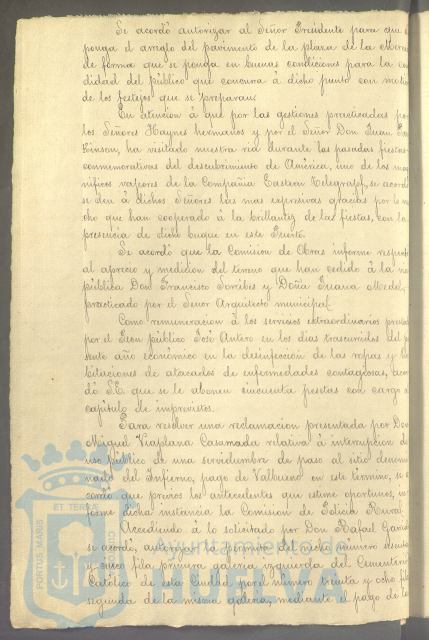 Se acordó autorizar al Señor Presidente para que
ponga el arreglo del pavimento de la plaza de la
de forma que se ponga en buenas condiciones para la
didad del público que concurra á dicho punto con
de los festejos que se preparan.
En atencion á que por las gestiones practicadas por
los Señores Haynes hermanos y por el Señor Don Juan
ha visitado nuestra ria durante las pasadas fiestas
conmemorativas del descubrimiento de América, uno de los mag
níficos vapores de la Compañia Eastern Telegraph, se acordó
se den á dichos Señores las mas expresivas gracias por lo mu
cho que han cooperado á la brillantez de las fiestas, con la
presencia de dicho buque en este Puerto.
Se acordó que la Comision de Obras informe respecto
al aprecio y medicion del terreno que han cedido á la
pública Don Francisco Toribio y Doña Juana
practicado por el Señor Arquitecto municipal.
Como remuneracion á los servicios extraordinarios
por el Peon público José Antero en los dias trascurridos del
sente año económico en la desinfeccion de las ropas y
bitaciones de atacados de enfermedades contagiosas, acor
dó S.E. que se le abonen cincuenta pesetas con cargo al
capítulo de imprevistos.
Para resolver una reclamacion presentada por Don
Miguel Viaplana Casamada relativa á interrupcion de
uso público de una servidumbre de paso al sitio denomi
nado del Infierno, pago de Valbueno en este término, se
cordó que previos los antecedentes que estime oportunos, in
forme dicha instancia la Comision de Policia Rural.
Accediendo á lo solicitado por Don Rafael
se acordó, autorizar la permuta del nicho número sesenta
y cinco fila primera galeria izquierda del Cementerio
Católico de esta Ciudad por el número treinta y ocho fila
segunda de la misma galeria, mediante el pago de
PORTUS MARIS
ET TERRÆ
Ayuntamiento de
HUELVA